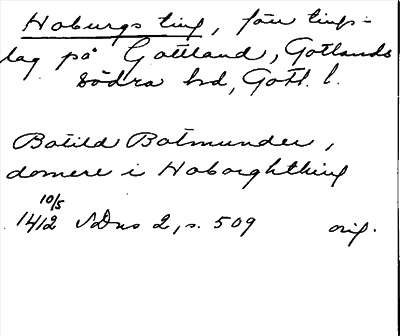 Hoburgs ting, förr tings-
lag på Gottland, Gotlands
södra hd, Gotl. l.
Botild Botmunder,
domere i Hoborghthing
10/5
1412 SDns 2, s. 509 orig.